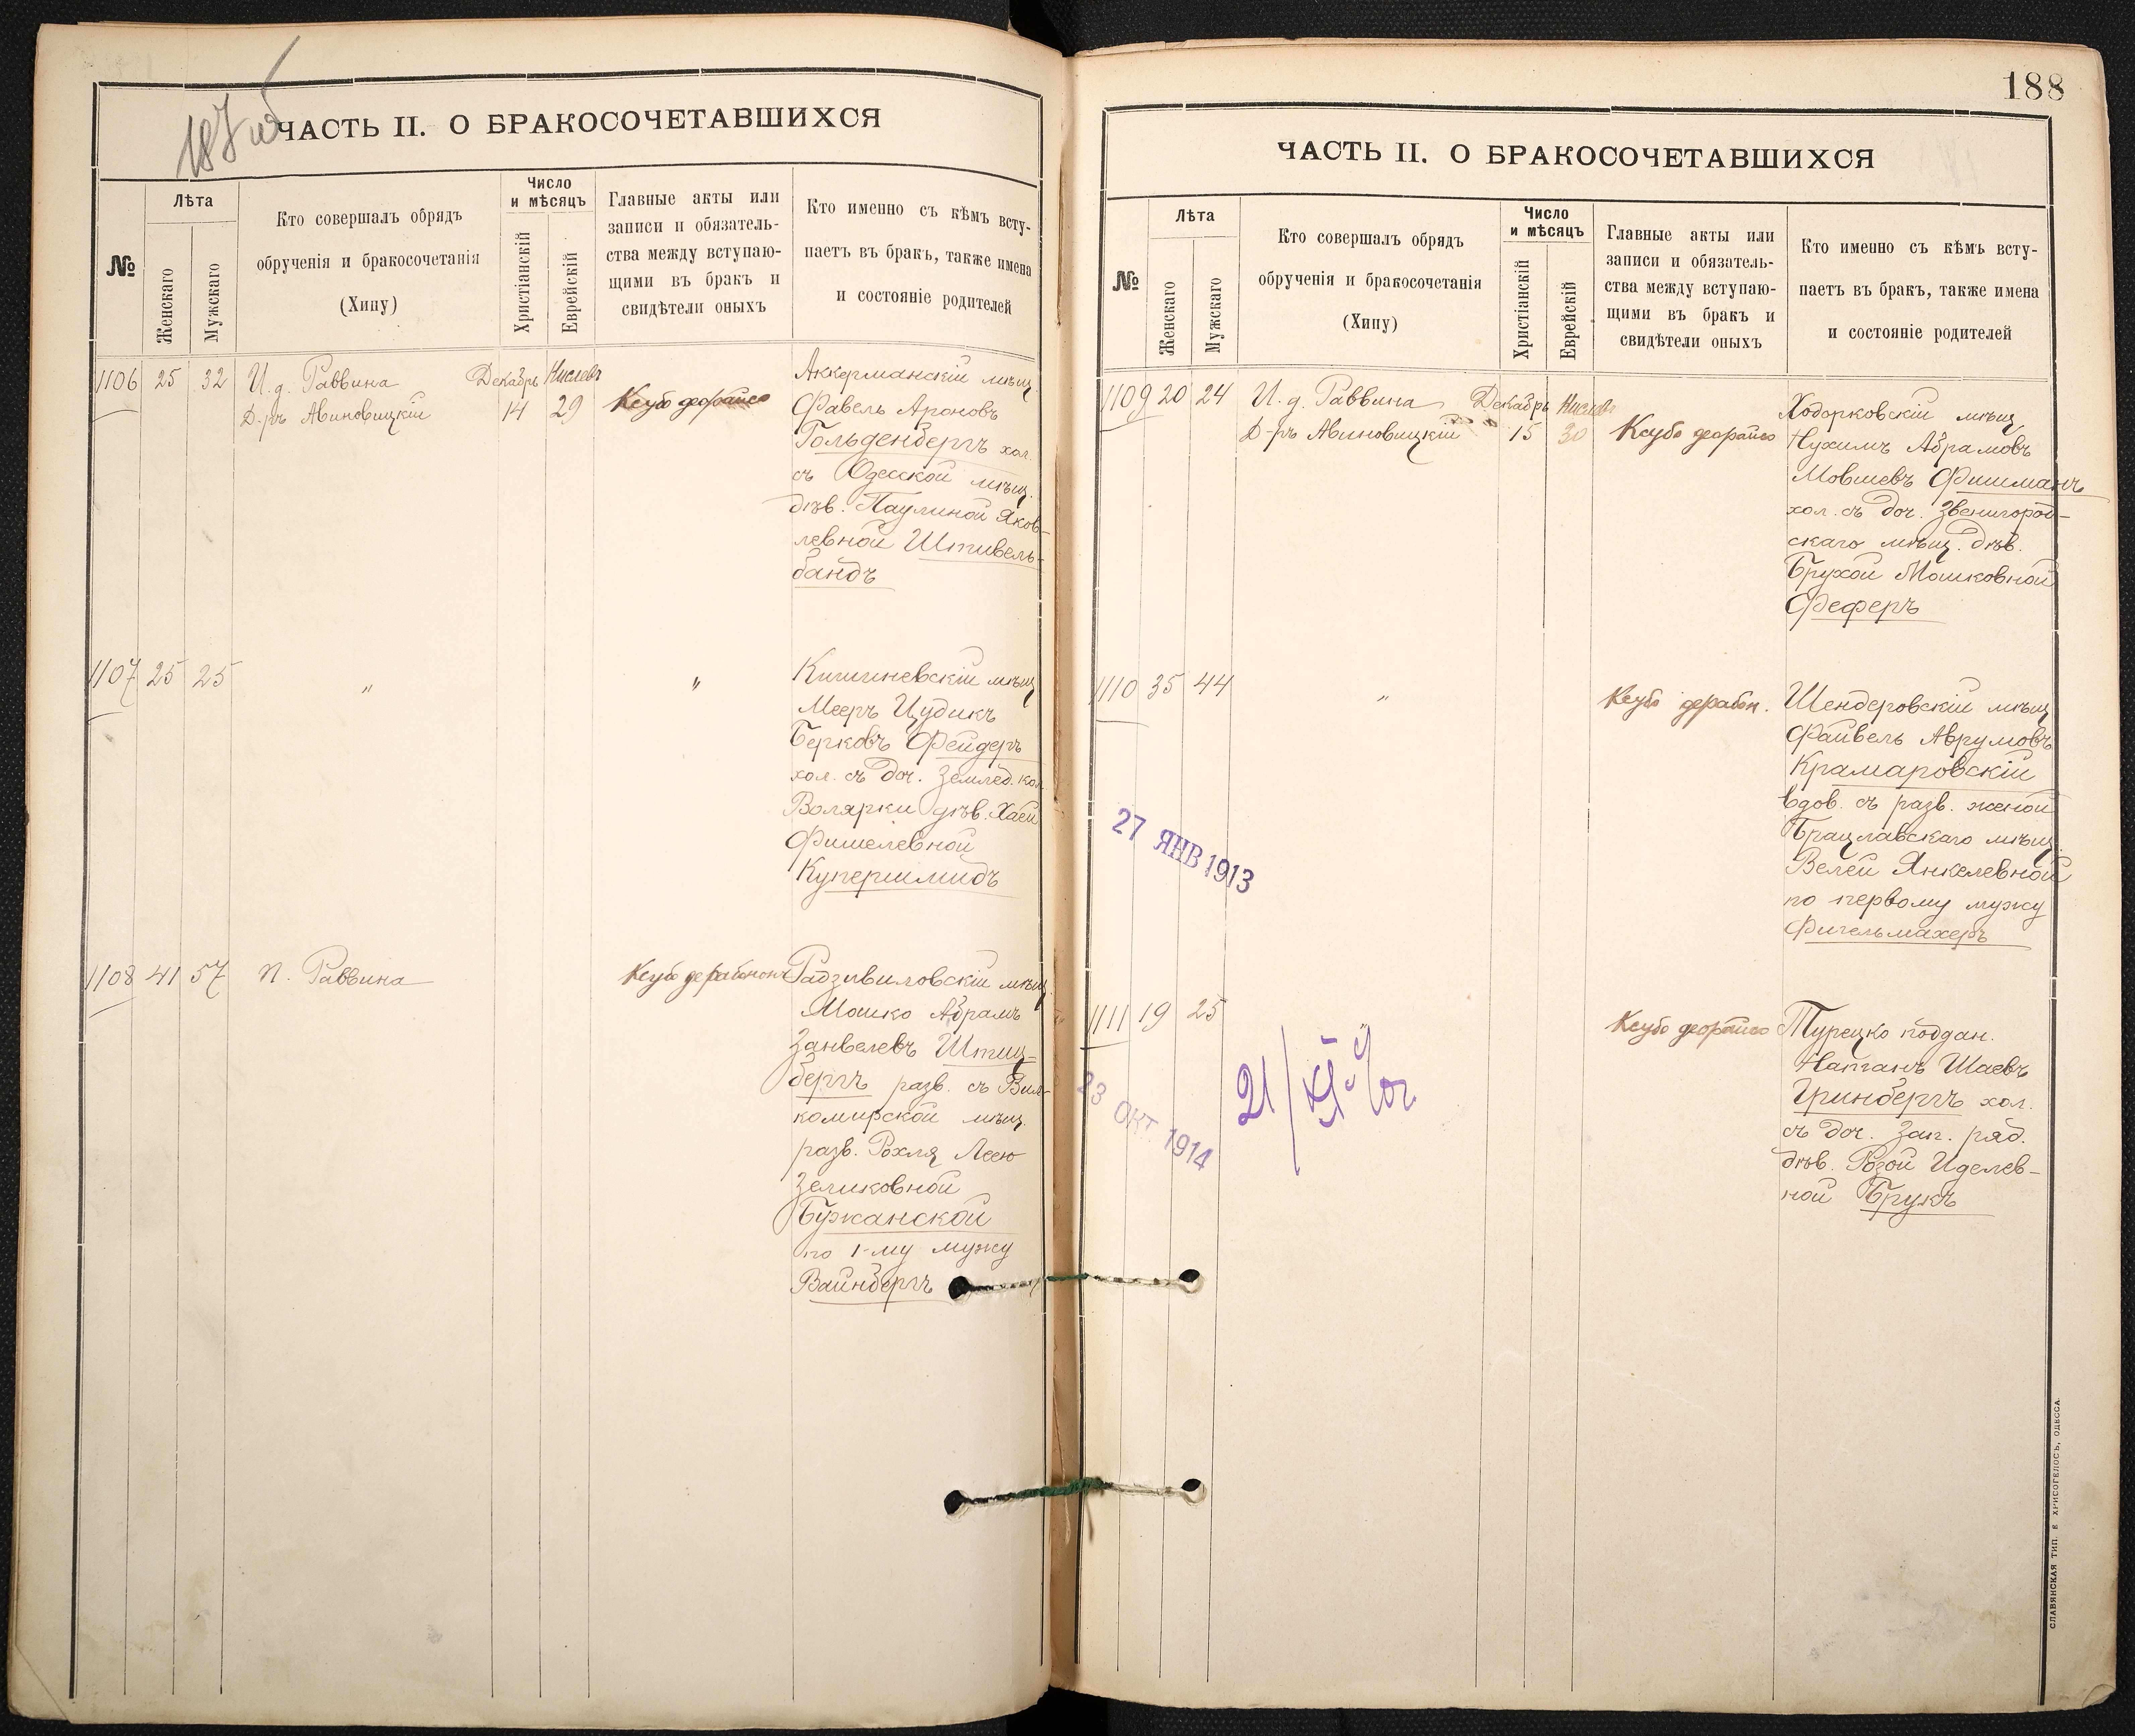 187 об
ЧАСТЬ II. О БРАКОСОЧЕТАВШИХСЯ
№
Лѣта
Женскаго
Мужскаго
Кто совершалъ обрядъ
обрученія и бракосочетанія
(Хипу)
Число
и мѣсяцъ
Христіанскій
Еврейскій
Главные акты или
записи и обязатель-
ства между вступаю-
щими въ бракъ и
свидѣтели оныхъ
Кто именно съ кѣмъ всту-
паетъ въ бракъ, также имена
и состояніе родителей
1106 25 32 И. д. Раввина Декабрь Кислевъ
Д-ръ Авиновицкій 14 29 Ксубо деорайсо
Аккерманскій мѣщ.
Фавель Ароновъ
Гольденбергъ хол.
съ Одесской мѣщ.
дѣв. Паулиной Яков-
левной Штивель-
бандъ
1107 25 25 " "
Кишиневскій мѣщ
Мееръ Цудикъ
Берковъ Фейдеръ
хол. съ доч. Землед. кол
Волярки дѣв. Хаей
Фишелевной
Купершмидъ
1108 41 57 П. Раввина Ксубо дерабонон
Радзивиловскій мѣщ.
Мошко Абрамъ
Занвелевъ Штиц-
бергъ разв. съ Вил-
комирской мѣщ.
разв. Рохля Леею
Зеликовной
Бужанской
по 1-му мужу
Вайнбергъ
188
ЧАСТЬ II. О БРАКОСОЧЕТАВШИХСЯ
№
Лѣта
Женскаго
Мужскаго
Кто совершалъ обрядъ
обрученія и бракосочетанія
(Хипу)
Число
и мѣсяцъ
Христіанскій
Еврейскій
Главные акты или
записи и обязатель-
ства между вступаю-
щими въ бракъ и
свидѣтели оныхъ
Кто именно съ кѣмъ всту-
паетъ въ бракъ, также имена
и состояніе родителей
1109 20 24 И. д. Раввина Декабрь Кислевъ
Д-ръ Авиновицкій 15 30 Ксубо деорайсо
Ходорковскій мѣщ
Нухимъ Абрамовъ
Мовшевъ Фишманъ
хол. съ доч. Звенигород-
скаго мѣщ. дѣв.
Брухой Мошковной
Феферъ
1110 35 44 " Ксубо дерабон.
Шендеровскій мѣщ
Файвель Аврумовъ
Крамаровскій
вдов. съ разв. женой
Брацлавскаго мѣщ.
Велей Янкелевной
по первому мужу
Фигельмахеръ
27 ЯНВ 1913
1111 19 25 " Ксубо деорайсо
Турецко поддан.
Натанъ Шаевъ
Гринбергъ хол.
съ доч. Зап. ряд.
дѣв. Розой Иделев-
ной Брукъ
23 ОКТ. 1914
СЛАВЯНСКАЯ ТИП. Е ХРИСОГЕЛОСЪ, ОДЕССА